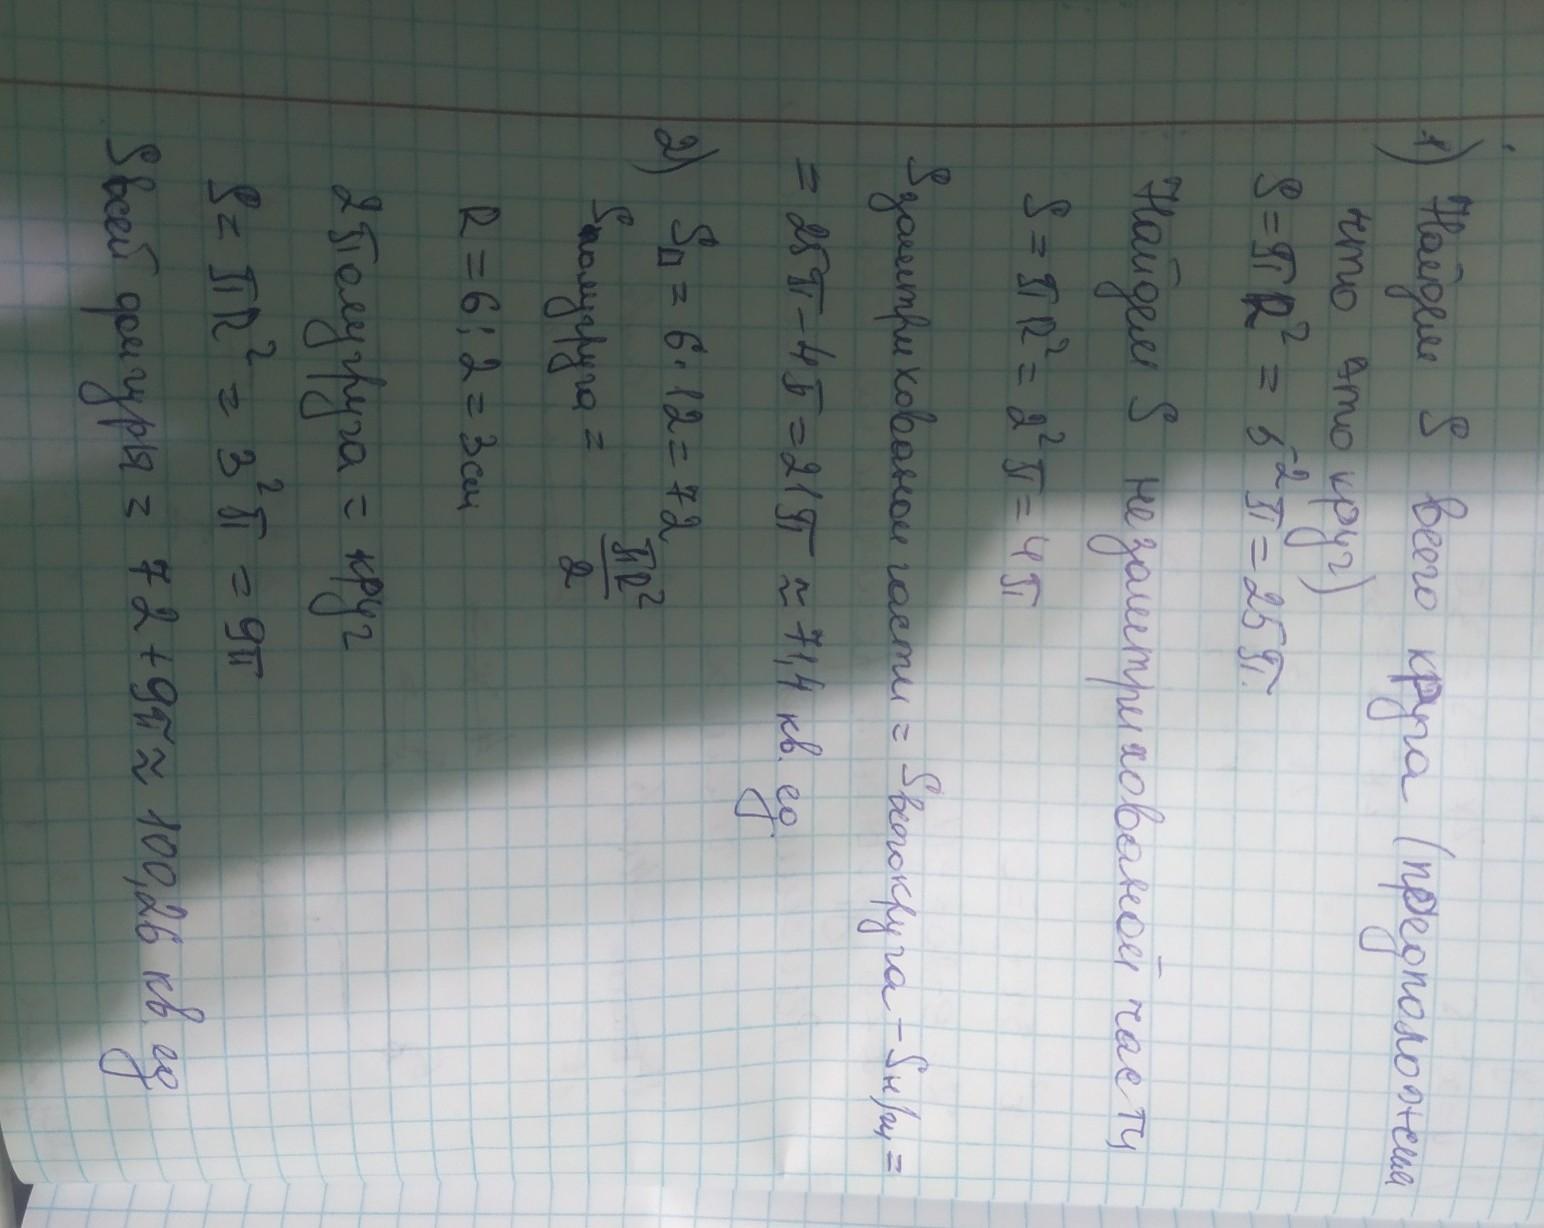 1) Найдем S всего круга (предположим
что это круг)
S = πR² = 5²π = 25π.
Найдем S незаштрихованной части
S = πR² = 2²π = 4π
Sзаштрихованной части = Sвсего круга - Sн/ш =
= 25π - 4π = 21π ≈ 71,4 кв. ед.
2) S□ = 6·12 = 72
Sполукруга = πR²/2
R = 6:2 = 3см
2 полукруга = круг
S = πR² = 3²π = 9π
Sвсей фигуры = 72 + 9π ≈ 100,26 кв. ед